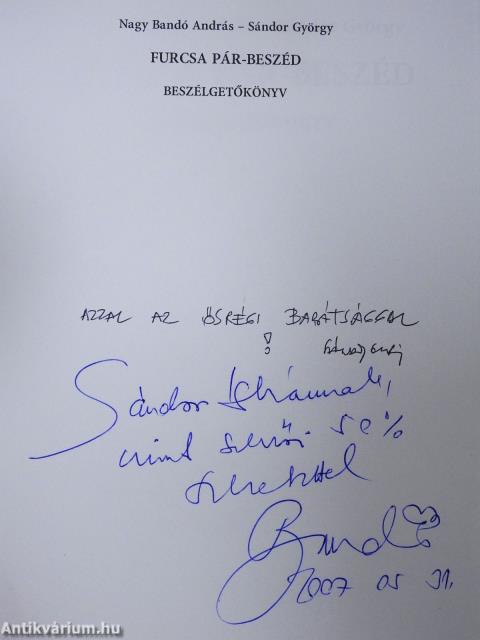 Nagy Bandó András – Sándor György
FURCSA PÁR-BESZÉD
BESZÉLGETŐKÖNYV
AZZAL AZ ŐSRÉGI BARÁTSÁGGAL
!
Sándor
mint szerző 50%
szeretettel
Bandó
2007 05 31.
Antikvárium.hu